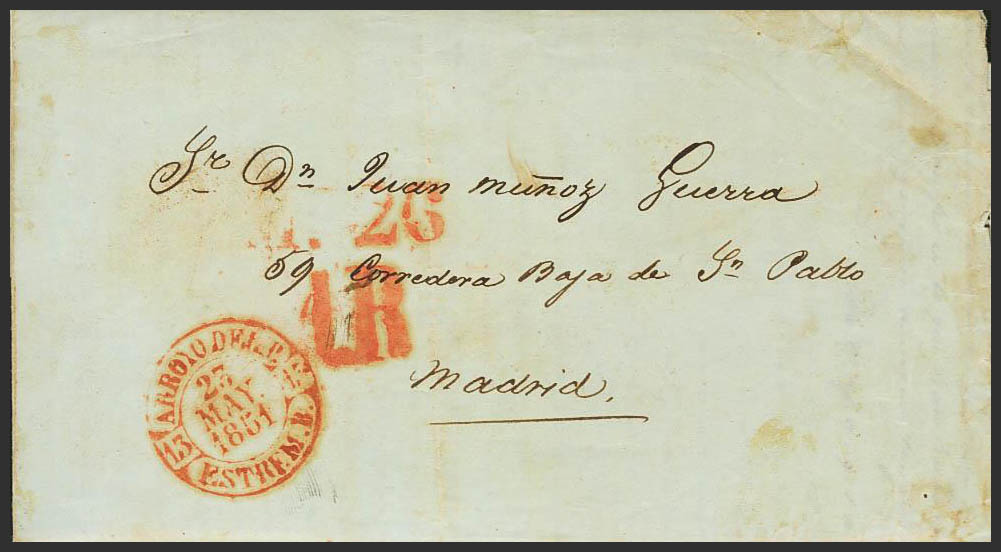 Sr Dn Juan Muñoz Guerra
26
59 Corredera Baja de Sn Pablo
1R
Madrid.
ARROYO DEL
23
MAY
1851
13
ESTREM. B.